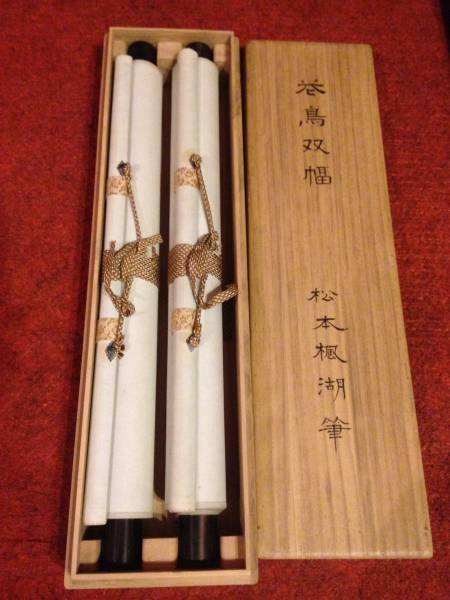 花鳥双幅
松本楓湖筆